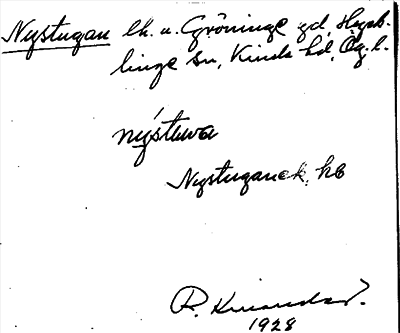 Nystugan lh. u. Gröninge gd, Hägeb-
linge sn, Kinda hd, Ög. l.
nýstuwa
Nystugan ek. kb
1928